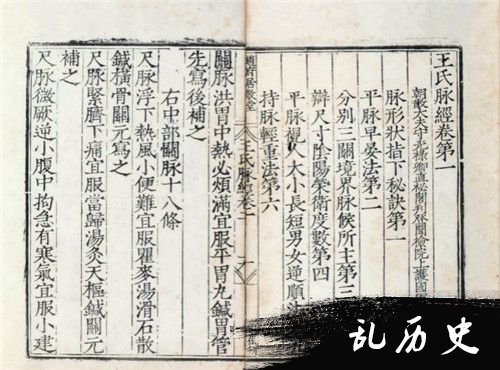 王氏脉經卷第一
朝散大夫守光祿卿直秘閣判登聞檢院上護國
脉形狀指下秘訣第一
平脉早晏法第二
分别三關境界脉候所主第三
辯尺寸陰陽榮衛度數第四
平脉視人大小長短男女逆順
持脉輕重法第六
王氏脉經卷二
關脉洪胃中熱必煩滿宜服平胃丸鍼胃管
先寫後補之
右中部關脉十八條
尺脉浮下熱風小便難宜服瞿麥湯滑石散
鍼橫骨關元寫之
尺脉緊臍下痛宜服當歸湯灸天樞鍼關元
補之
尺脉微厥逆小腹中拘急有寒氣宜服小建
乱历史